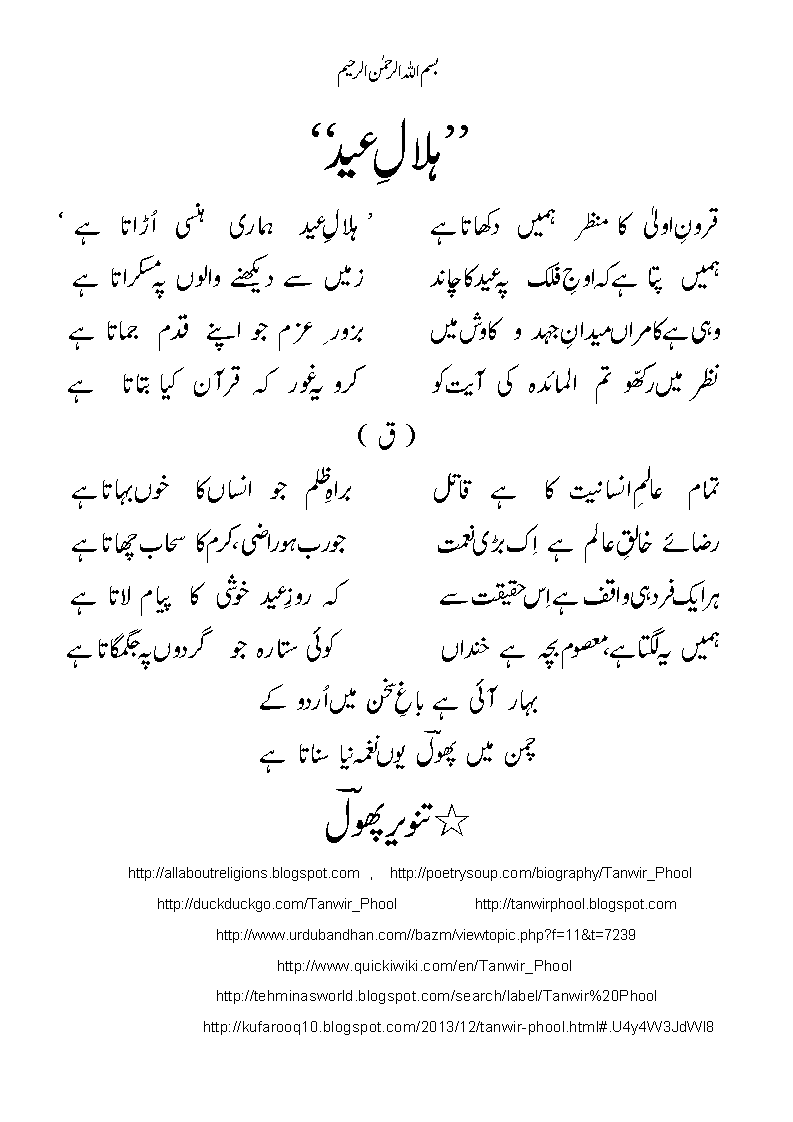 بسم اللہ الرحمٰن الرحیم
”ہلالِ عید“
قرونِ اولیٰ کا منظر ہمیں دکھاتا ہے ’ ہلالِ عید ہماری ہنسی اُڑاتا ہے ‘
ہمیں پتا ہے کہ اوجِ فلک پہ عید کا چاند زمیں سے دیکھنے والوں پہ مسکراتا ہے
وہی ہے کامراں میدانِ جہد و کاوش میں بزورِ عزم جو اپنے قدم جماتا ہے
نظر میں رکھّو تم المائدہ کی آیت کو کرو یہ غور کہ قرآن کیا بتاتا ہے
( ق )
تمام عالمِ انسانیت کا ہے قاتل براہِ ظلم جو انساں کا خوں بہاتا ہے
رضائے خالقِ عالم ہے اِک بڑی نعمت جو رب ہو راضی، کرم کا سحاب چھاتا ہے
ہر ایک فرد ہی واقف ہے اِس حقیقت سے کہ روزِ عید خوشی کا پیام لاتا ہے
ہمیں یہ لگتا ہے، معصوم بچہ ہے خنداں کوئی ستارہ جو گردوں پہ جگمگاتا ہے
بہار آئی ہے باغِ سخن میں اُردو کے
چمن میں پھولؔ یوں نغمہ نیا سناتا ہے
☆ تنویر پھولؔ
http://allaboutreligions.blogspot.com , http://poetrysoup.com/biography/Tanwir_Phool
http://duckduckgo.com/Tanwir_Phool http://tanwirphool.blogspot.com
http://www.urdubandhan.com//bazm/viewtopic.php?f=11&t=7239
http://www.quickiwiki.com/en/Tanwir_Phool
http://tehminasworld.blogspot.com/search/label/Tanwir%20Phool
http://kufarooq10.blogspot.com/2013/12/tanwir-phool.html#.U4y4W3JdWI8